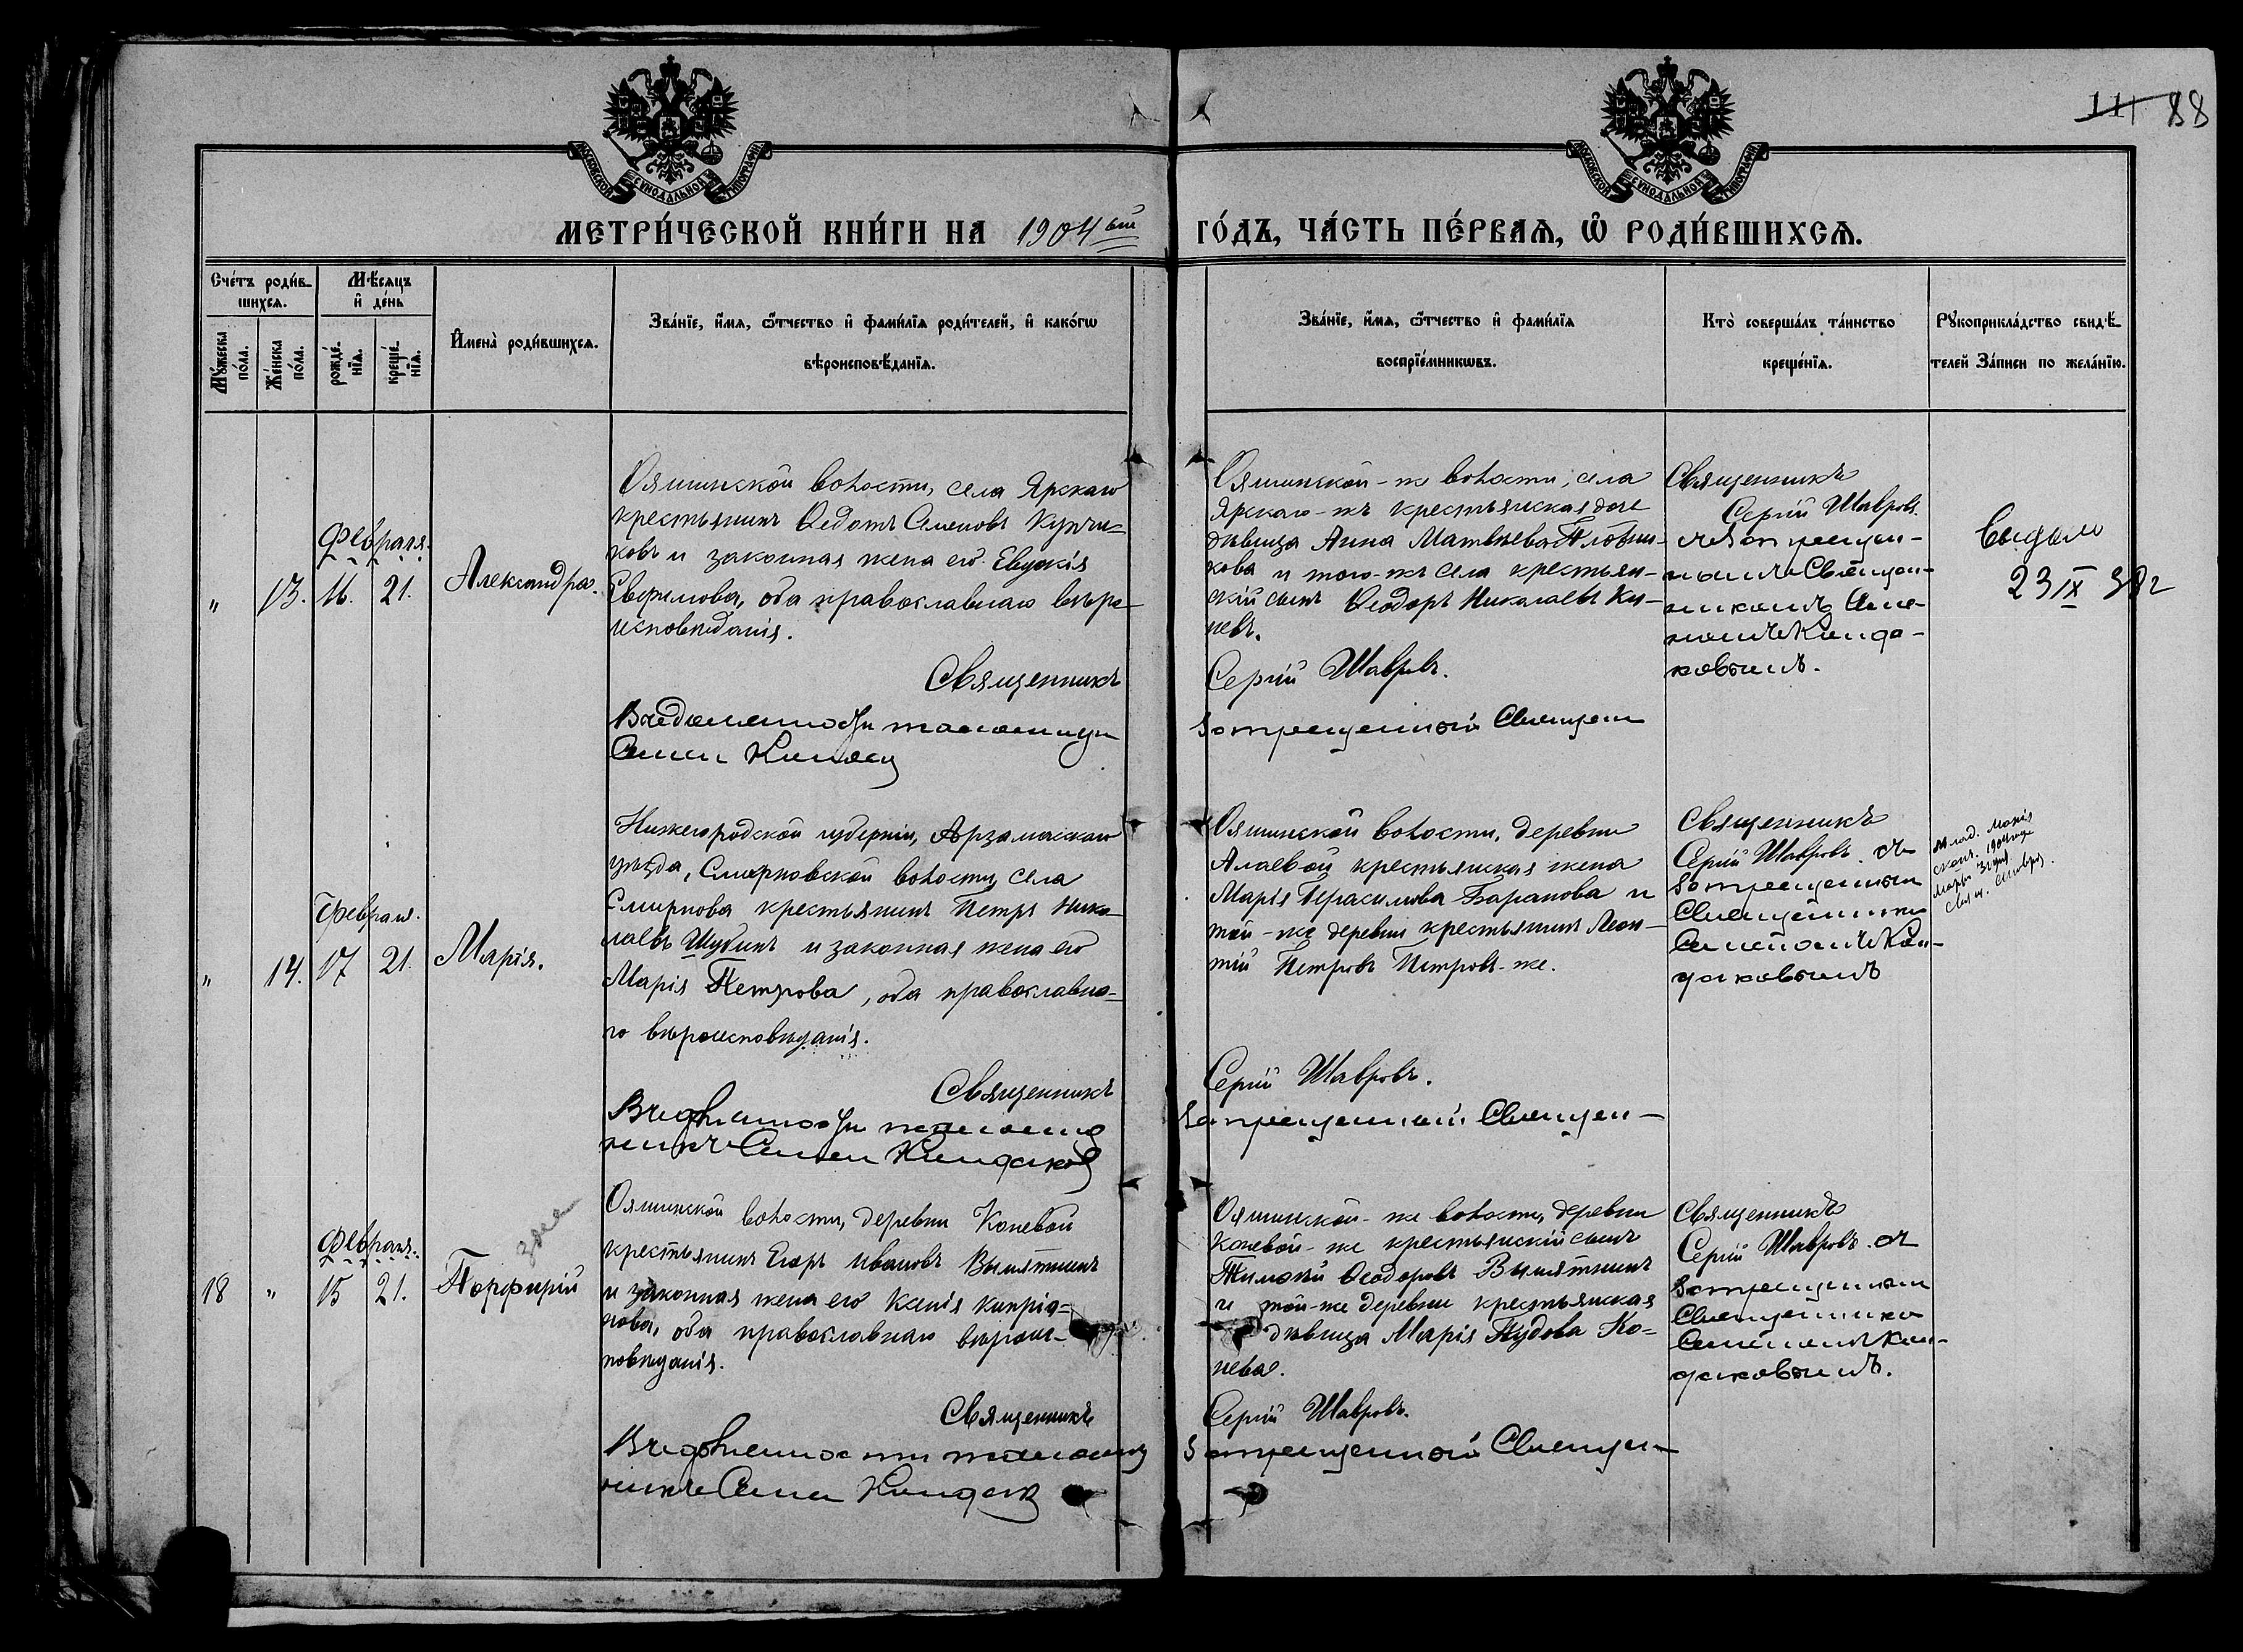 111 88
МОСКОВСКОЙ СѴНОДАЛЬНОЙ ТИПОГРАФІИ
МОСКОВСКОЙ СѴНОДАЛЬНОЙ ТИПОГРАФІИ
МЕТРИ́ЧЕСКОЙ КНИ́ГИ НА 1904ый
ГО́ДЪ, ЧА́СТЬ ПЕ́РВАѦ, Ѡ҆ РОДИ́ВШИХСѦ.
Сче́тъ роди́в-
шихсѧ.
Мꙋ́жеска
по́ла.
Же́нска
по́ла.
Мѣ́сѧцъ
и҆ де́нь
рожде́-
нїѧ.
креще́-
нїѧ.
И҆мена̀ роди́вшихсѧ.
Зва́нїе, и҆́мѧ, ѻ҆́тчество и҆ фами́лїѧ роди́телей, и҆ како́гѡ
вѣроисповѣ́данїѧ.
Зва́нїе, и҆́мѧ, ѻ҆́тчество и҆ фами́лїѧ
воспрїе́мникѡвъ.
Кто̀ соверша́лъ та́инство
креще́нїѧ.
Рꙋкоприкла́дство свидѣ́-
телей За́писи по жела́нїю.
Февраля.
" 13. 16. 21.
Александра.
Ояшинской волости, села Ярскаго
крестьянинъ Ѳедотъ Семеновъ Купчи-
ковъ и законная жена его Евдокія
Евфимова, оба православнаго вѣро-
исповѣданія.
Священникъ
Ояшинской-же волости, села
Ярскаго-же крестьянская дочь
дѣвица Анна Матвѣева Плотни-
кова и того-же села крестьян-
скій сынъ Ѳеодоръ Николаевъ Ки-
невъ.
Сергій Шавровъ.
Запрещенный Священ
Священникъ
Сергій Шавровъ
съ запрещен-
нымъ Священ-
никомъ Симе-
ономъ Кинда-
ковымъ.
Выдано
23 IX 38 г
Февраля.
" 14. 17 21.
Марія.
Нижегородской губерніи, Арзамаскаго
уѣзда, Смирновской волости, села
Смирнова крестьянинъ Петръ Нико-
лаевъ Шубинъ и законная жена его
Марія Петрова, оба православна-
го вѣроисповѣданія.
Священникъ
Ояшинской волости, деревни
Алаевой крестьянская жена
Марія Герасимова Баранова и
той-же деревни крестьянинъ Леон-
тій Петровъ Петровъ-же.
Сергій Шавровъ.
Запрещенный Священ-
никъ
Священникъ
Сергій Шавровъ съ
запрещеннымъ
Священникомъ
Симеономъ Кин-
даковымъ
Млад. Марія
сконч. 1904 года
Марта 31 дня.
Свящ. Шавров.
Февраля.
18 " 15 21.
Порфирій
Ояшинской волости, деревни Коневой
крестьянинъ Егоръ Ивановъ Вымятнинъ
и законная жена его Ксенія Кипріа-
нова, оба православнаго вѣроис-
повѣданія.
Священникъ
Ояшинской-же волости, деревни
Коневой-же крестьянскій сынъ
Тимоѳей Ѳеодоровъ Вымятнинъ
и той-же деревни крестьянская
дѣвица Марія Іудова Ко-
нева.
Сергій Шавровъ.
Запрещенный Священ-
Священникъ
Сергій Шавровъ съ
запрещеннымъ
Священникомъ
Симеономъ Кин-
даковымъ.